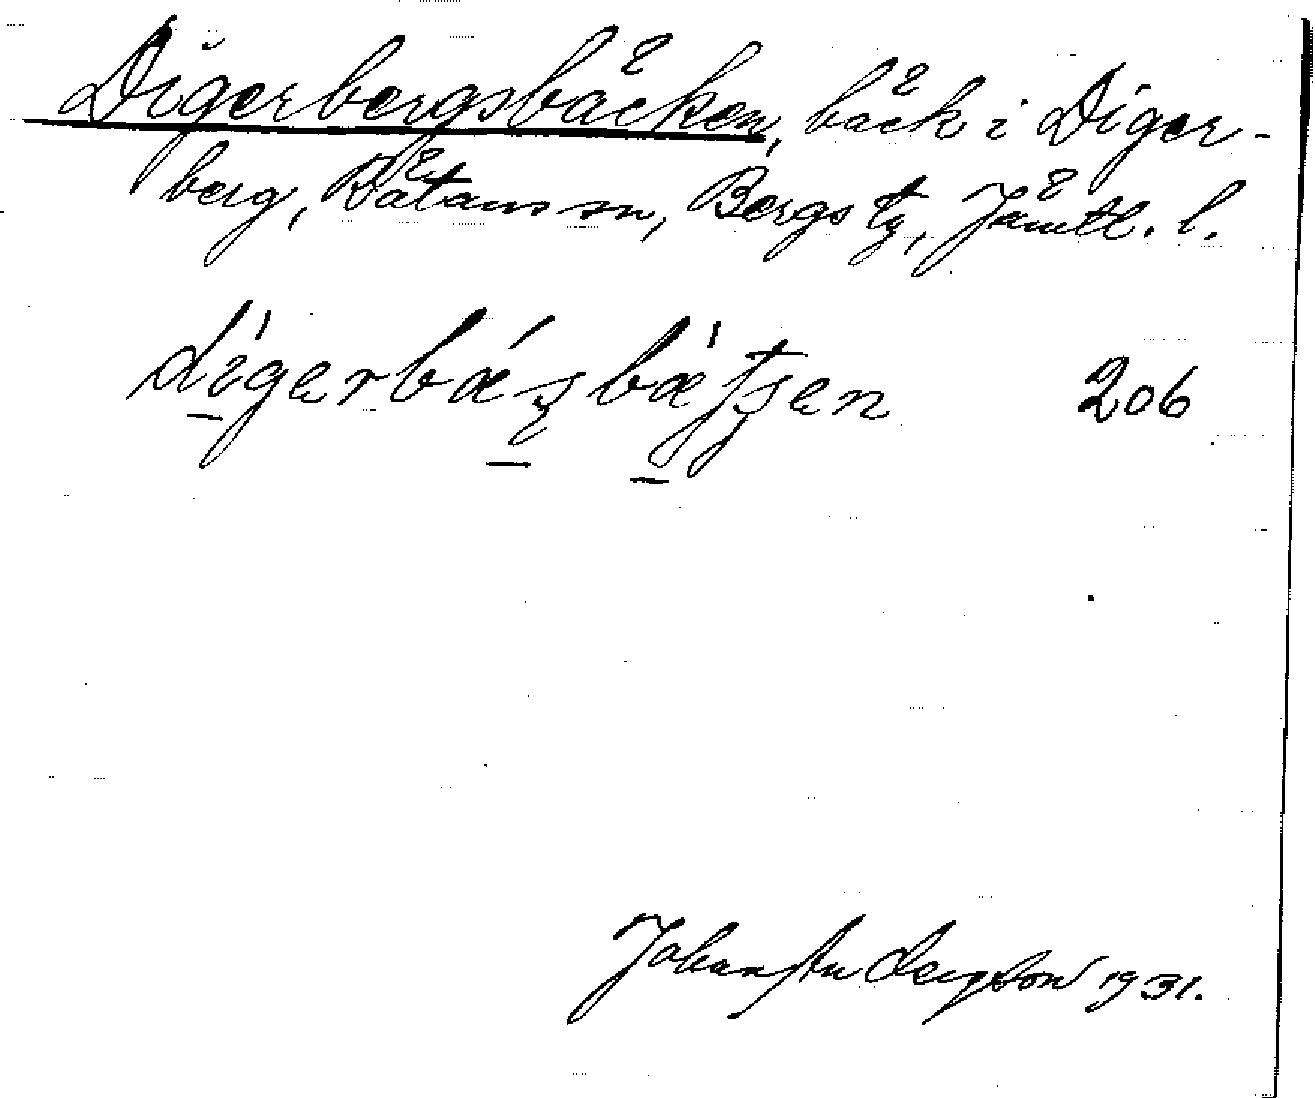 Digerbergsbäcken, bäck i Diger-
berg, Rätans sn, Bergs tg, Jämtl. l.
206
Johan Anderson 1931.